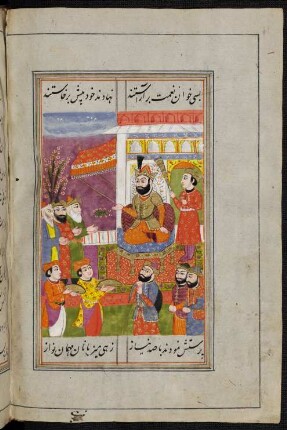 بسی خوان نعمت برآراستند نهادند خود پیش برخاستند
پرستش نمودند با صد نیاز زهی میزبانان مهمان نواز